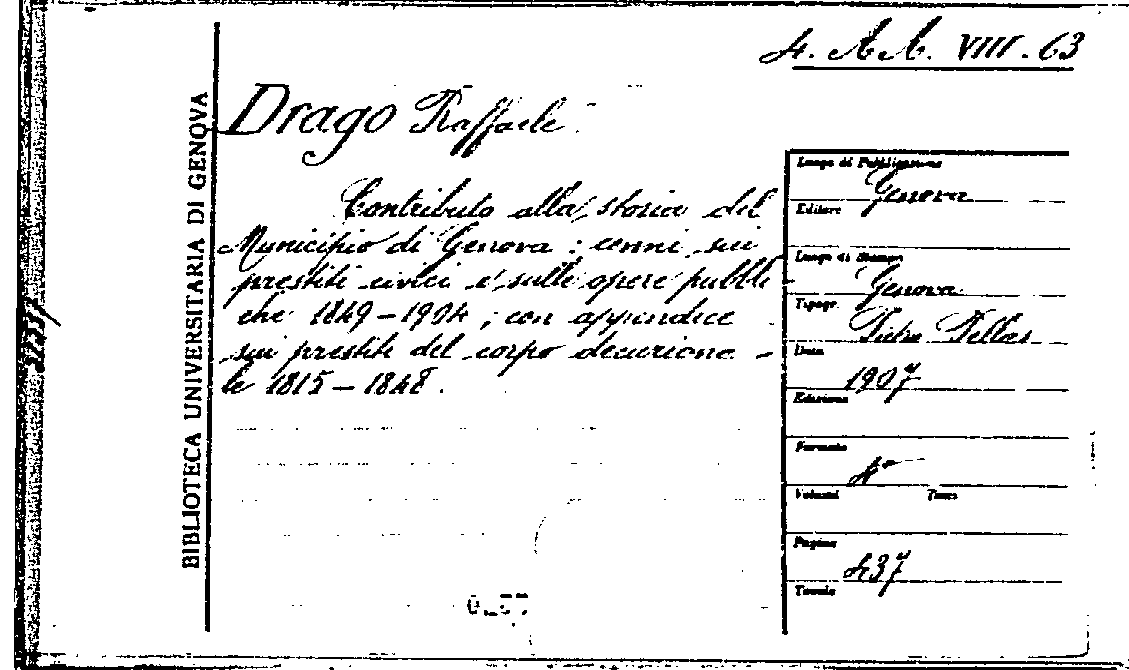 4. A A. VIII. 63
BIBLIOTECA UNIVERSITARIA DI GENOVA
Drago Raffaele.
Contributo alla storia del
Municipio di Genova: cenni sui
prestiti civici e sulle opere pubbli-
che 1849-1904; con appendice
sui prestiti del corpo decuriona-
le 1815-1848.
Luogo di Pubblicazione
Genova
Editore
Luogo di Stampa
Genova
Tipogr.
Pietro Pellas
Data
1907
Edizione
Formato
4°
Volumi Tomi
Pagine
437
Tavole